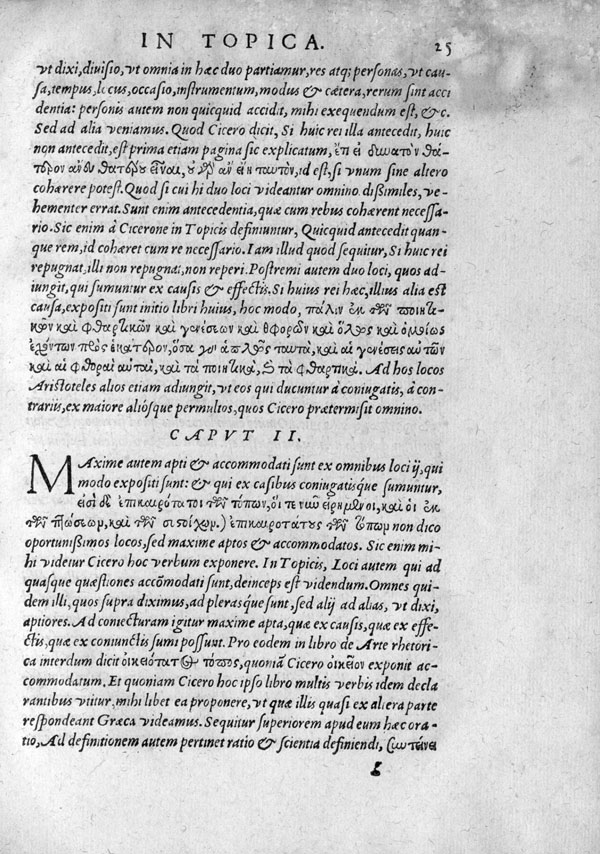 IN TOPICA. 25
vt dixi, diuisio, vt omnia in hæc duo partiamur, res atq; personas, vt cau-
sa, tempus, locus, occasio, instrumentum, modus & cætera, rerum sint acci
dentia: personis autem non quicquid accidit, mihi exequendum est, & c.
Sed ad alia veniamus. Quod Cicero dicit, Si huic rei illa antecedit, huic
non antecedit, est prima etiam pagina sic explicatum, ἔτι εἰ δυνατὸν θά-
τερον ἄνευ θατέρου εἶναι, οὐκ ἂν εἴη ταυτὸν, id est, si vnum sine altero
cohærere potest. Quod si cui hi duo loci videantur omnino dißimiles, ve-
hementer errat. Sunt enim antecedentia, quæ cum rebus cohærent necessa-
rio. Sic enim à Cicerone in Topicis definiuntur, Quicquid antecedit quan-
que rem, id cohæret cum re necessario. Iam illud quod sequitur, Si huic rei
repugnat, illi non repugnat, non reperi. Postremi autem duo loci, quos ad-
iungit, qui sumuntur ex causis & effectis. Si huius rei hæc, illius alia est
causa, expositi sunt initio libri huius, hoc modo, πάλιν ἐκ τῶν ποιητι-
κῶν καὶ φθαρτικῶν καὶ γενέσεων καὶ φθορῶν καὶ ὅλως καὶ ὁμοίως
ἐχόντων πρὸς ἑκάτερον, ὅσα γὰρ ἁπλῶς ταυτὰ, καὶ αἱ γενέσεις αὐτῶν
καὶ αἱ φθοραὶ αὐταὶ, καὶ τὰ ποιητικὰ, & τὰ φθαρτικά. Ad hos locos
Aristoteles alios etiam adiungit, vt eos qui ducuntur à coniugatis, à con-
trariis, ex maiore aliósque permultos, quos Cicero prætermisit omnino.
CAPVT II.
MAxime autem apti & accommodati sunt ex omnibus loci ij, qui
modo expositi sunt: & qui ex casibus coniugatisque sumuntur,
εἰσὶ δὲ ἐπικαιρότατοι τῶν τόπων, οἵ τε νῦν εἰρημένοι, καὶ οἱ ἐκ
τῶν πτώσεων, καὶ τῶν συστοίχων.) ἐπικαιροτάτους τῶν τόπων non dico
oportunißimos locos, sed maxime aptos & accommodatos. Sic enim mi-
hi videtur Cicero hoc verbum exponere. In Topicis, Loci autem qui ad
quasque quæstiones accõmodati sunt, deinceps est videndum. Omnes qui-
dem illi, quos supra diximus, ad plerasque sunt, sed alij ad alias, vt dixi,
aptiores. Ad coniecturam igitur maxime apta, quæ ex causis, quæ ex effe-
ctis, quæ ex coniunctis sumi possunt. Pro eodem in libro de Arte rhetori-
ca interdum dicit οἰκειότατος τόπος, quoniã Cicero οἰκεῖον exponit ac-
commodatum. Et quoniam Cicero hoc ipso libro multis verbis idem decla
rantibus vtitur, mihi libet ea proponere, vt quæ illis quasi ex altera parte
respondeant Græca videamus. Sequitur superiorem apud eum hæc ora-
tio, Ad definitionem autem pertinet ratio & scientia definiendi,
g